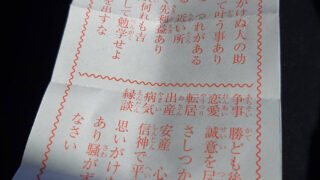 かけぬ人の助
て叶う事あり
つれがある
近い所
先利益あり
何れも吉
して勉学せよ
を出すな
争事 勝ども後
恋愛 誠意を尽
転居 さしつか
出産 安産 心
病気 信神で平
縁談 思いがけ
あり騒がず
なさい